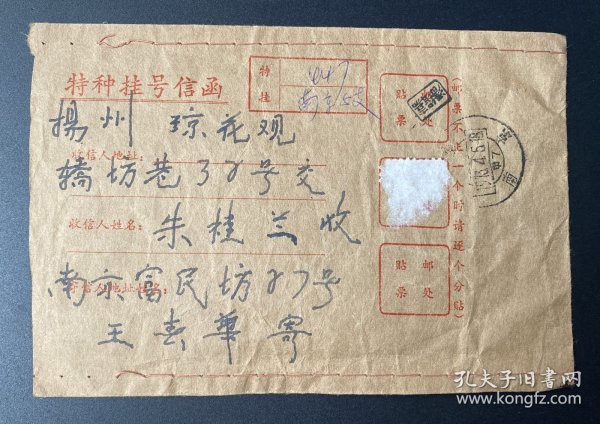 特种挂号信函
特挂
047
南京15支
扬州 琼花观
收信人地址:
轿坊巷32号交
收信人姓名:
朱桂兰收
南京富民坊27号
王春华寄
贴 邮
票 处
贴 邮
票 处
(邮票不止一个时请逐个分贴)
南京
孔夫子旧书网
www.kongfz.com